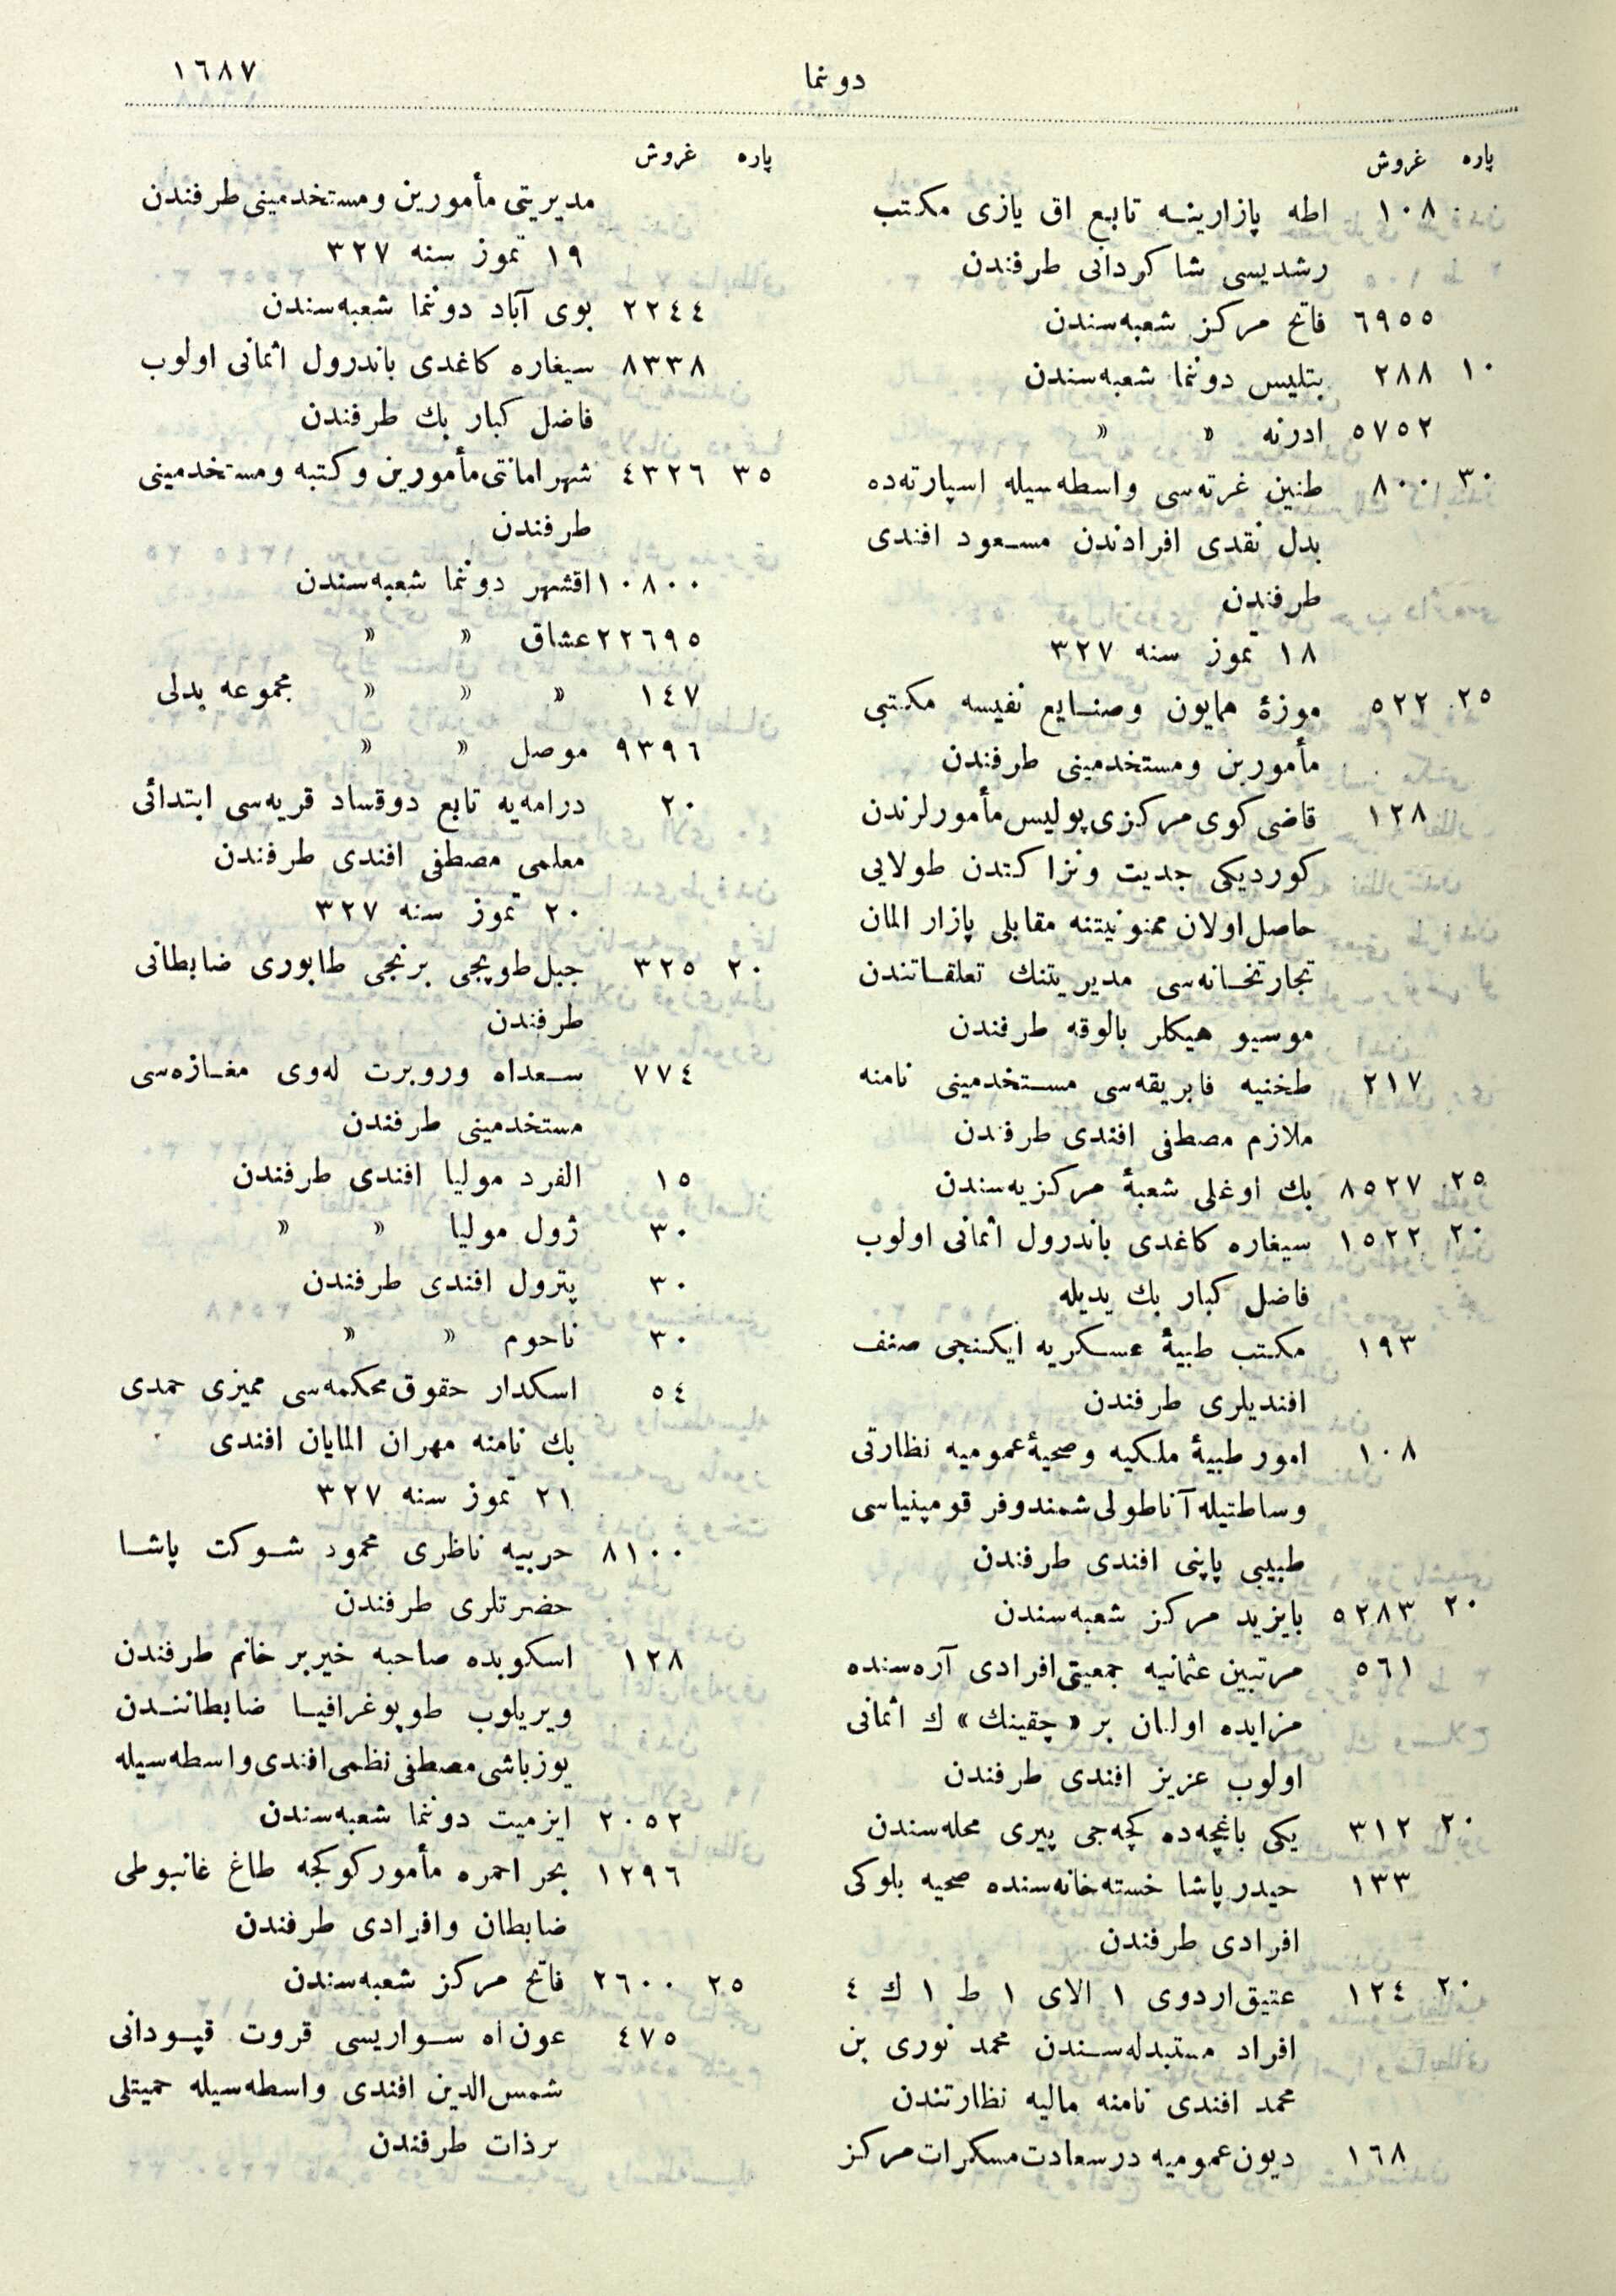 دونما
١٦٨٧
پاره غروش
١٠٨ اطه پازارينه تابع اق يازى مكتب
رشديسى شاكردانى طرفندن
٦٩٥٥ فاتح مركز شعبه‌سندن
١٠ ٢٨٨ بتليس دونما شعبه‌سندن
٥٧٥٢ ادرنه » »
٣٠ ٨٠٠ طنين غزته‌سى واسطه‌سيله اسپارته‌ده
بدل نقدى افرادندن مسعود افندى
طرفندن
١٨ تموز سنه ٣٢٧
٢٥ ٥٢٢ موزهٔ همايون وصنايع نفيسه مكتبى
مأمورين ومستخدمينى طرفندن
١٢٨ قاضى كوى مركزى پوليس مأمورلرندن
كورديكى جديت ونزاكتدن طولايى
حاصل اولان ممنونيتنه مقابلى پازار المان
تجارتخانه‌سى مديريتنك تعلقاتندن
موسيو هيكلر بالوقه طرفندن
٢١٧ طخنيه فابريقه‌سى مستخدمينى نامنه
ملازم مصطفى افندى طرفندن
٢٥ ٨٥٢٧ بك اوغلى شعبهٔ مركزيه‌سندن
٢٠ ١٥٢٢ سيغاره كاغدى باندرول اثمانى اولوب
فاضل كبار بك يديله
١٩٣ مكتب طبيهٔ عسكريه ايكنجى صنف
افنديلرى طرفندن
١٠٨ امور طبيهٔ ملكيه وصحيهٔ عموميه نظارتى
وساطتيله آناطولى شمندوفر قومپنياسى
طبيبى پاپنى افندى طرفندن
٢٠ ٥٢٨٣ بايزيد مركز شعبه‌سندن
٥٦١ مرتبين عثمانيه جمعيتى افرادى آره‌سنده
مزايده اولنان بر «چقينك» ك اثمانى
اولوب عزيز افندى طرفندن
٢٠ ٣١٢ يكى باغچه‌ده كچه‌جى پيرى محله‌سندن
١٣٣ حيدر پاشا خسته‌خانه‌سنده صحيه بلوكى
افرادى طرفندن
٢٠ ١٢٤ عتيق اردوى ١ الاى ١ ط ١ ك ٤
افراد مستبدله‌سندن محمد نورى بن
محمد افندى نامنه ماليه نظارتندن
١٦٨ ديون عموميه درسعادت مسكرات مركز
پاره غروش
مديريتى مأمورين ومستخدمينى طرفندن
١٩ تموز سنه ٣٢٧
٢٢٤٤ بوى آباد دونما شعبه‌سندن
٨٣٣٨ سيغاره كاغدى باندرول اثمانى اولوب
فاضل كبار بك طرفندن
٣٥ ٤٣٢٦ شهر امانتى مأمورين وكتبه ومستخدمينى
طرفندن
١٠٨٠٠ اقشهر دونما شعبه‌سندن
٢٢٦٩٥ عشاق » »
١٤٧ » » » مجموعه بدلى
٩٣٩٦ موصل » »
٢٠ درامه‌يه تابع دوقساد قريه‌سى ابتدائى
معلمى مصطفى افندى طرفندن
٢٠ تموز سنه ٣٢٧
٢٠ ٣٢٥ جبل طوپچى برنجى طابورى ضابطانى
طرفندن
٧٧٤ سعداه وروبرت له‌وى مغازه‌سى
مستخدمينى طرفندن
١٥ الفرد موليا افندى طرفندن
٣٠ ژول موليا » »
٣٠ پترول افندى طرفندن
٣٠ ناحوم » »
٥٤ اسكدار حقوق محكمه‌سى مميزى حمدى
بك نامنه مهران المايان افندى
٢١ تموز سنه ٣٢٧
٨١٠٠ حربيه ناظرى محمود شوكت پاشا
حضرتلرى طرفندن
١٢٨ اسكوبده صاحبه خيربر خانم طرفندن
ويريلوب طوپوغرافيا ضابطانندن
يوزباشى مصطفى نظمى افندى واسطه‌سيله
٢٠٥٢ ايزميت دونما شعبه‌سندن
١٢٩٦ بحر احمره مأمور كوكجه طاغ غانبوطى
ضابطان وافرادى طرفندن
٢٥ ٢٦٠٠ فاتح مركز شعبه‌سندن
٤٧٥ عون‌اه سواريسى قروت قپودانى
شمس‌الدين افندى واسطه‌سيله حميتلى
برذات طرفندن